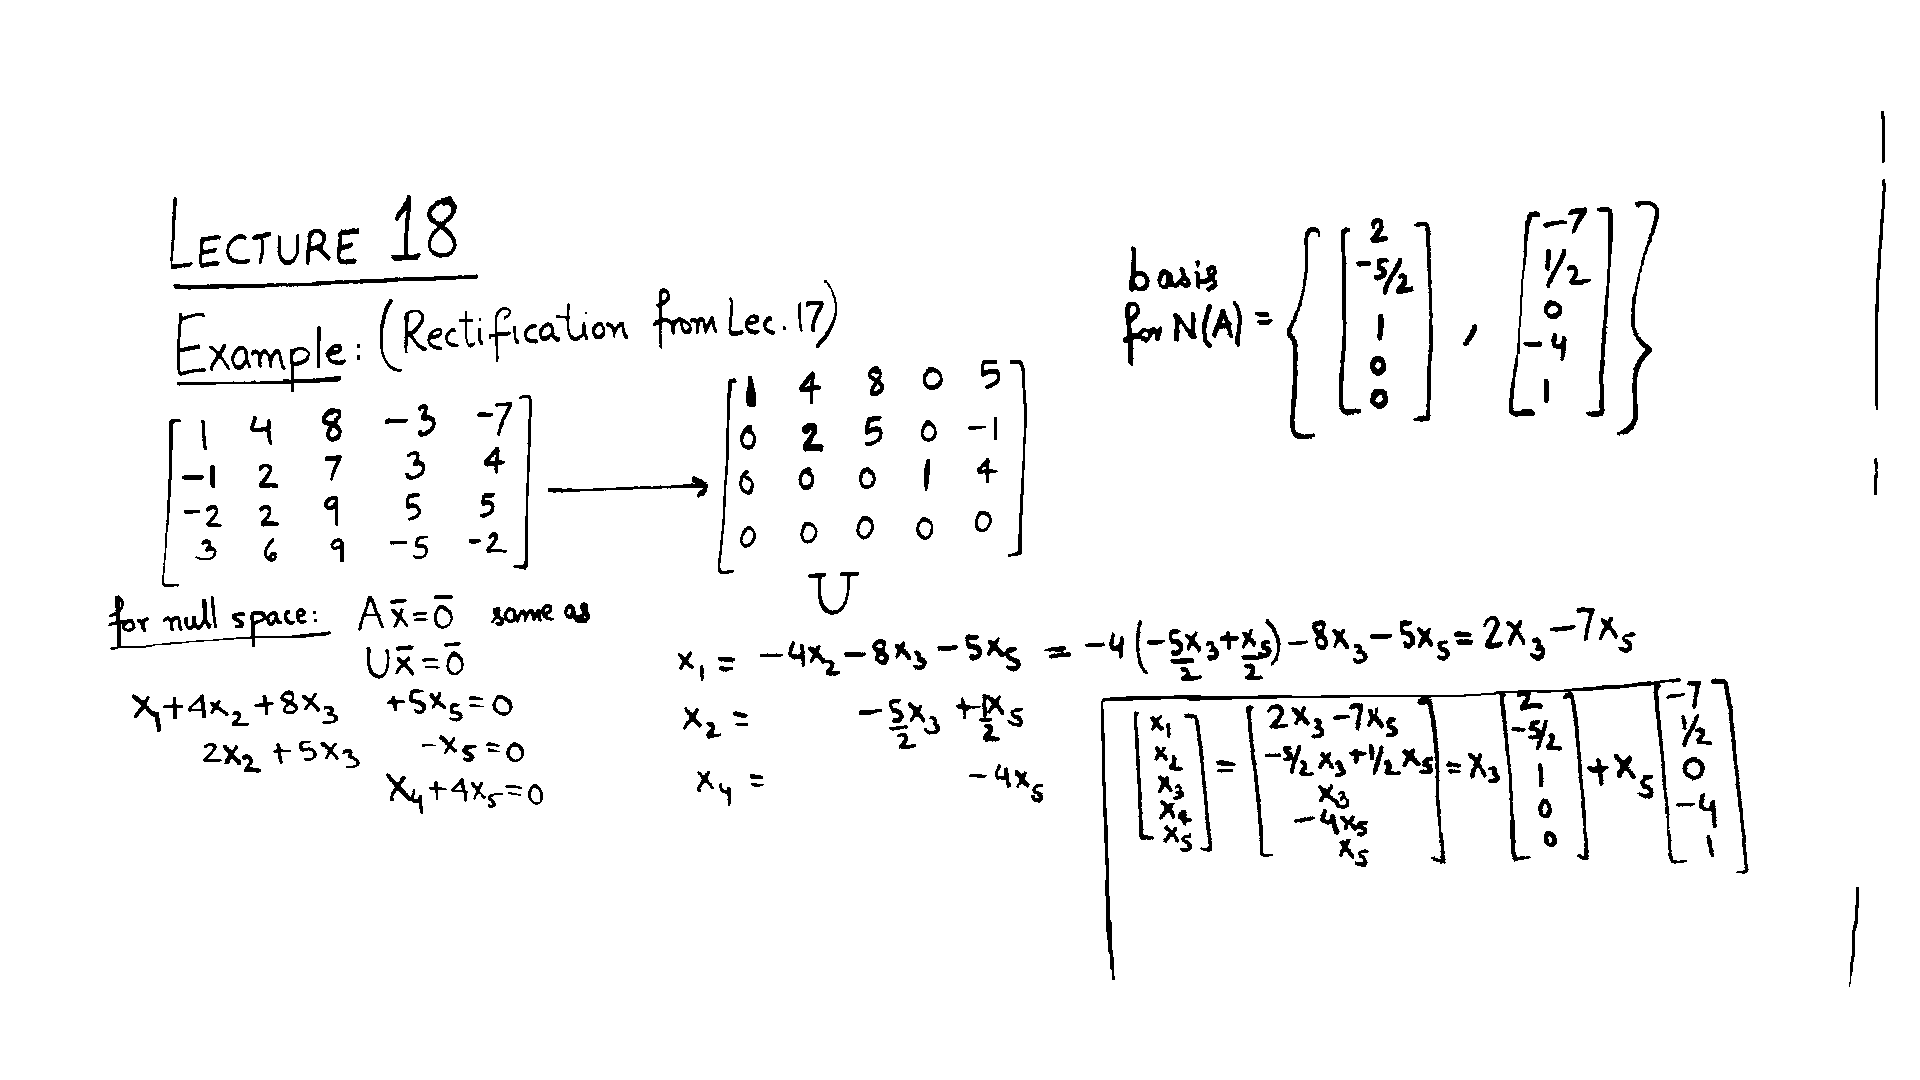 LECTURE 18
Example: (Rectification from Lec. 17)
[1 4 8 -3 -7
-1 2 7 3 4
-2 2 9 5 5
3 6 9 -5 -2]
→
[1 4 8 0 5
0 2 5 0 -1
0 0 0 1 4
0 0 0 0 0]
U
basis
for N(A) = { [2 -5/2 1 0 0] , [-7 1/2 0 -4 1] }
for null space: Ax̄=0̄ same as
Ux̄=0̄
x₁+4x₂+8x₃ +5x₅=0
2x₂+5x₃ -x₅=0
x₄+4x₅=0
x₁ = -4x₂-8x₃-5x₅ = -4(-5x₃/2+x₅/2)-8x₃-5x₅=2x₃-7x₅
x₂ = -5/2x₃ +1/2x₅
x₄ = -4x₅
[x₁ x₂ x₃ x₄ x₅] = [2x₃-7x₅ -5/2x₃+1/2x₅ x₃ -4x₅ x₅] = x₃ [2 -5/2 1 0 0] + x₅ [-7 1/2 0 -4 1]